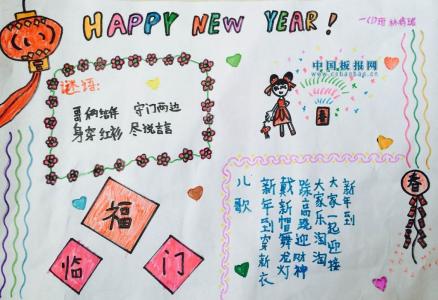 HAPPY NEW YEAR!
一(1)班
谜语:
哥俩结伴 守门两边
身穿红衫 尽说吉言
中国板报网
福
临
门
春
儿歌
新年到穿新衣
戴新帽舞龙灯
踩高跷迎财神
大家乐淘淘
大家一起迎接
新年到